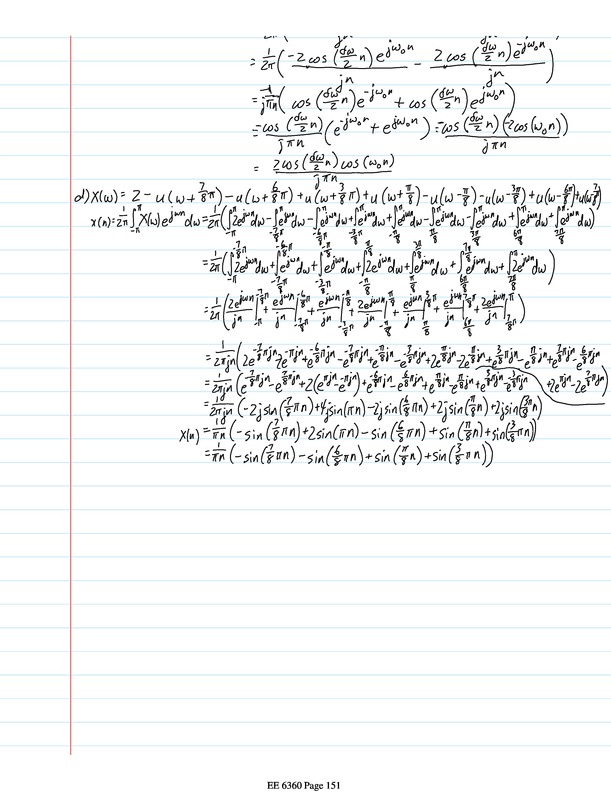 = 1/2π ( -2cos(δω/2 n)e^{jω₀n} / jn - 2cos(δω/2 n)e^{-jω₀n} / jn )
= -1/jπn ( cos(δω/2 n)e^{-jω₀n} + cos(δω/2 n)e^{jω₀n} )
= -cos(δω/2 n) / jπn (e^{-jω₀n} + e^{jω₀n}) = -cos(δω/2 n)(-2cos(ω₀n)) / jπn
= 2cos(δω/2 n)cos(ω₀n) / jπn
d) X(ω) = 2 - u(ω + 7/8 π) - u(ω + 6/8 π) + u(ω + 3/8 π) + u(ω + π/8) - u(ω - π/8) - u(ω - 3π/8) + u(ω - 6π/8) + u(ω - 7/8 π)
x(n) = 1/2π ∫_{-π}^{π} X(ω)e^{jωn} dω = 1/2π ( ∫_{-π}^{π} 2e^{jωn}dω - ∫_{-7/8π}^{π} e^{jωn}dω - ∫_{-6/8π}^{π} e^{jωn}dω + ∫_{-3/8π}^{π} e^{jωn}dω + ∫_{-π/8}^{π} e^{jωn}dω - ∫_{π/8}^{π} e^{jωn}dω - ∫_{3π/8}^{π} e^{jωn}dω + ∫_{6π/8}^{π} e^{jωn}dω + ∫_{7π/8}^{π} e^{jωn}dω )
= 1/2π ( ∫_{-π}^{-7/8π} 2e^{jωn}dω + ∫_{-7/8π}^{-6/8π} e^{jωn}dω + ∫_{-3/8π}^{-π/8} e^{jωn}dω + ∫_{-π/8}^{π/8} 2e^{jωn}dω + ∫_{π/8}^{3π/8} e^{jωn}dω + ∫_{6π/8}^{7π/8} e^{jωn}dω + ∫_{7π/8}^{π} 2e^{jωn}dω )
= 1/2π ( 2e^{jωn}/jn |_{-π}^{-7/8π} + e^{jωn}/jn |_{-7/8π}^{-6/8π} + e^{jωn}/jn |_{-3/8π}^{-π/8} + 2e^{jωn}/jn |_{-π/8}^{π/8} + e^{jωn}/jn |_{π/8}^{3/8π} + e^{jωn}/jn |_{6π/8}^{7/8π} + 2e^{jωn}/jn |_{7/8π}^{π} )
= 1/2πjn ( 2e^{-7/8πjn} - 2e^{-πjn} + e^{-6/8πjn} - e^{-7/8πjn} + e^{-π/8jn} - e^{-3/8πjn} + 2e^{π/8jn} - 2e^{-π/8jn} + e^{3/8πjn} - e^{π/8jn} + e^{7/8πjn} - e^{6/8πjn}
+ 2e^{πjn} - 2e^{7/8πjn} )
= 1/2πjn ( e^{-7/8πjn} - e^{7/8πjn} + 2(e^{πjn} - e^{-πjn}) + e^{-6/8πjn} - e^{6/8πjn} + e^{π/8jn} - e^{-π/8jn} + e^{3/8πjn} - e^{-3/8πjn}
= 1/2πjn ( -2jsin(7/8 πn) + 4jsin(πn) - 2jsin(6/8 πn) + 2jsin(π/8 n) + 2jsin(3π/8 n) )
X(n) = 1/πn ( -sin(7/8 πn) + 2sin(πn) - sin(6/8 πn) + sin(π/8 n) + sin(3/8 πn) )
= 1/πn ( -sin(7/8 πn) - sin(6/8 πn) + sin(π/8 n) + sin(3/8 πn) )
EE 6360 Page 151